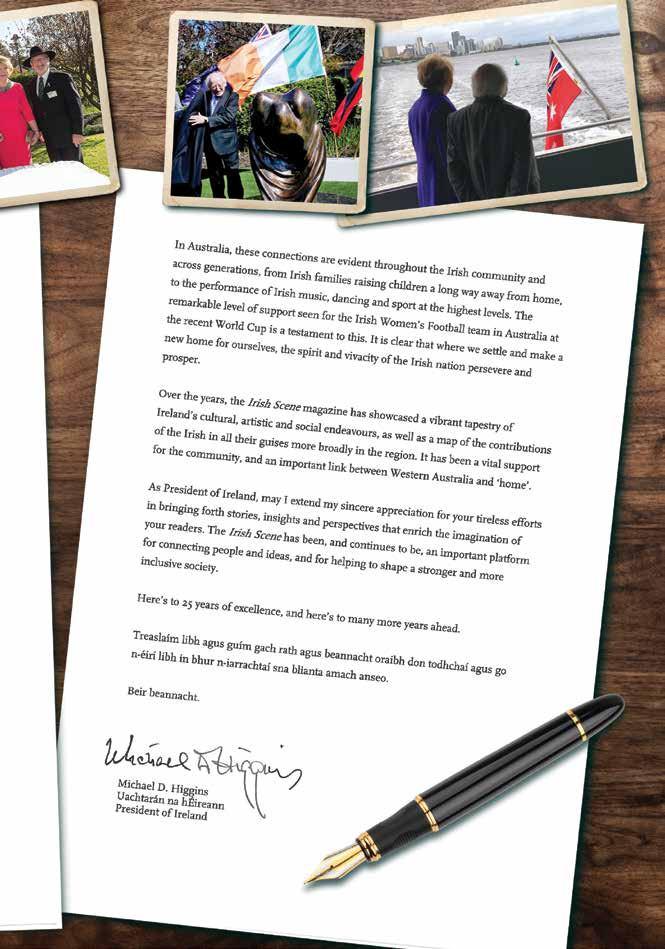 In Australia, these connections are evident throughout the Irish community and
across generations, from Irish families raising children a long way away from home,
to the performance of Irish music, dancing and sport at the highest levels. The
remarkable level of support seen for the Irish Women's Football team in Australia at
the recent World Cup is a testament to this. It is clear that where we settle and make a
new home for ourselves, the spirit and vivacity of the Irish nation persevere and
prosper.
Over the years, the Irish Scene magazine has showcased a vibrant tapestry of
Ireland's cultural, artistic and social endeavours, as well as a map of the contributions
of the Irish in all their guises more broadly in the region. It has been a vital support
for the community, and an important link between Western Australia and 'home'.
As President of Ireland, may I extend my sincere appreciation for your tireless efforts
in bringing forth stories, insights and perspectives that enrich the imagination of
your readers. The Irish Scene has been, and continues to be, an important platform
for connecting people and ideas, and for helping to shape a stronger and more
inclusive society.
Here's to 25 years of excellence, and here's to many more years ahead.
Treaslaím libh agus guím gach rath agus beannacht oraibh don todhchaí agus go
n-éirí libh in bhur n-iarrachtaí sna blianta amach anseo.
Beir beannacht.
Michael D Higgins
Michael D. Higgins
Uachtarán na hÉireann
President of Ireland